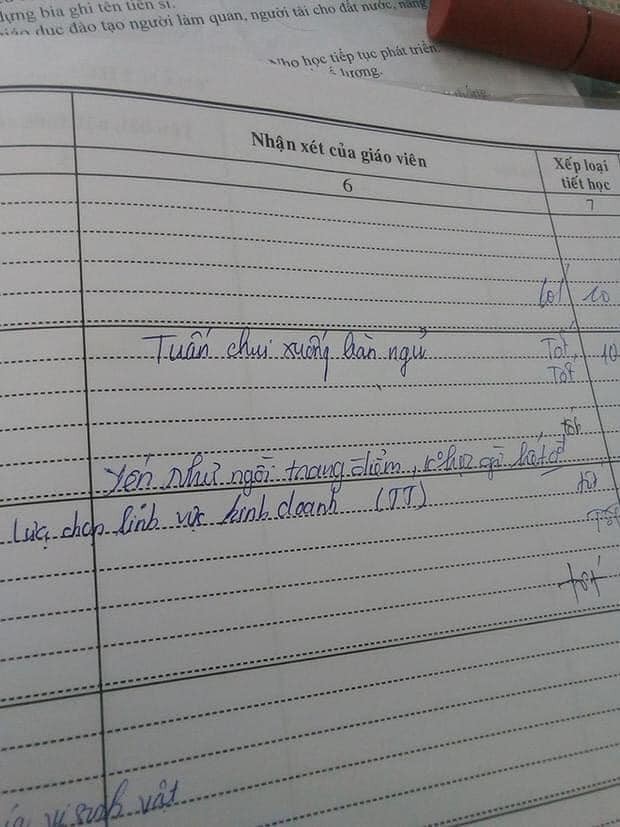 dựng bia ghi tên tiến sĩ.
giáo dục đào tạo người làm quan, người tài cho đất nước, nâng
Nho học tiếp tục phát triển.
lượng.
Nhận xét của giáo viên
Xếp loại tiết học
6
7
Tốt 10
Tuấn chui xuống bàn ngủ Tốt 10
Tốt
tốt
Yến Như ngồi trang điểm, k học gì hết
Lựa chọn lĩnh vực kinh doanh (TT) tốt
Tốt
tốt
vi sinh vật